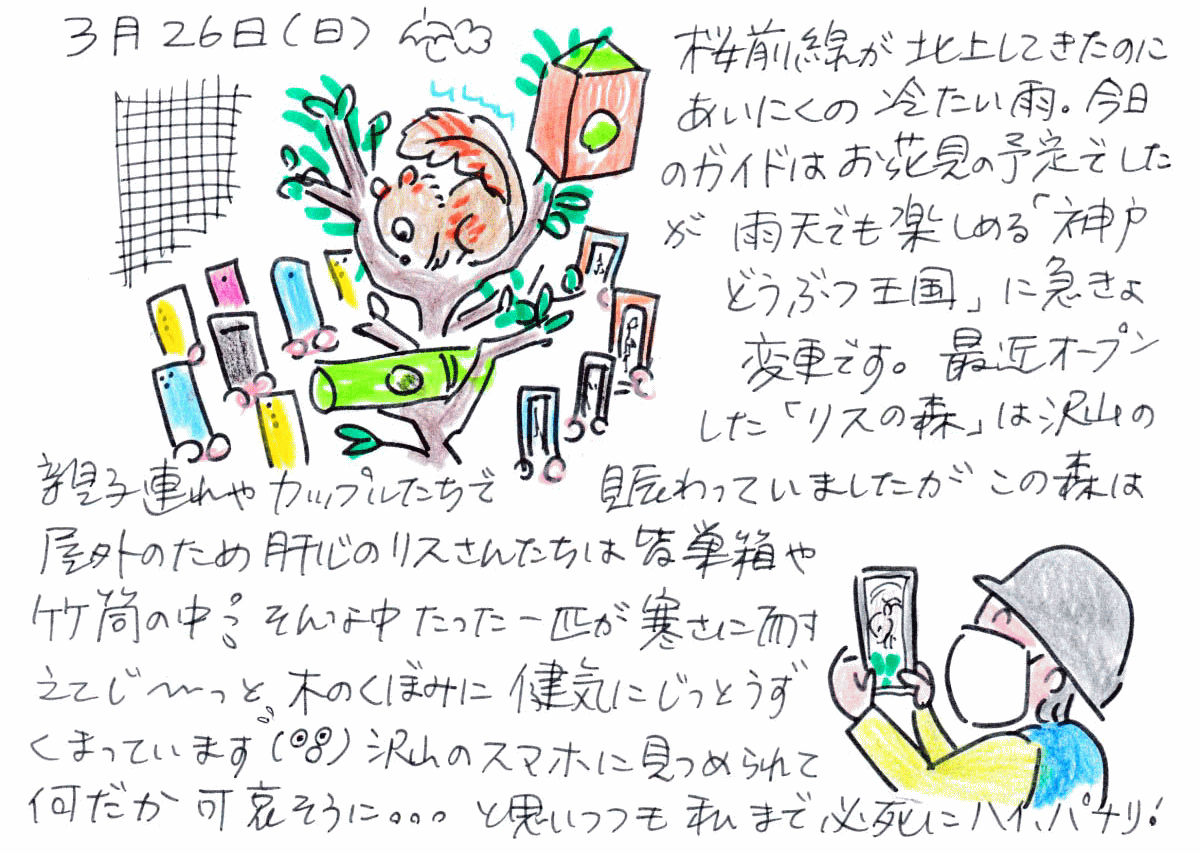 3月26日(日)
桜前線が北上してきたのに
あいにくの冷たい雨。今日
のガイドはお花見の予定でした
が雨天でも楽しめる「神戸
どうぶつ王国」に急きょ
変更です。最近オープン
した「リスの森」は沢山の
親子連れやカップルたちで賑わっていましたがこの森は
屋外のため肝心のリスさんたちは皆巣箱や
竹筒の中。そんな中たった一匹が寒さに耐
えてじ〜〜っと木のくぼみに健気にじっとうず
くまっています 沢山のスマホに見つめられて
何だか可哀そうに。。。と思いつつも私まで必死にハイ、パチリ!